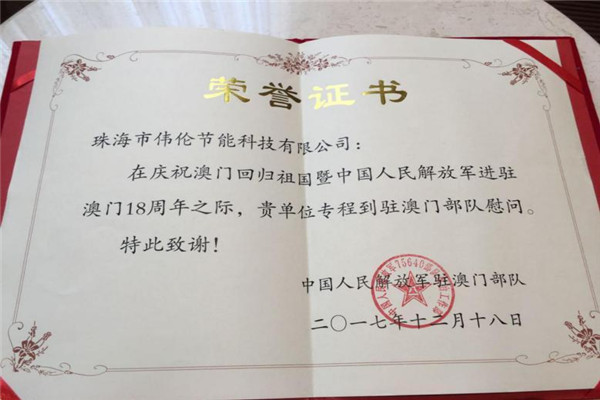 荣誉证书
珠海市伟伦节能科技有限公司：
在庆祝澳门回归祖国暨中国人民解放军进驻
澳门18周年之际，贵单位专程到驻澳门部队慰问。
特此致谢！
中国人民解放军驻澳门部队
二〇一七年十二月十八日